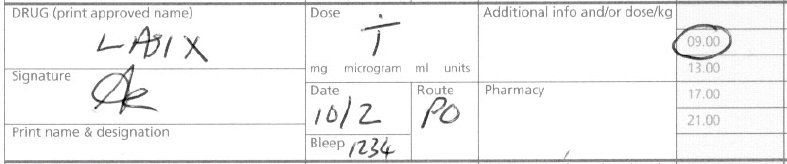 DRUG (print approved name)
LASIX
Signature
Print name & designation
Dose
mg microgram ml units
Date
10/2
Route
PO
Bleep 1234
Additional info and/or dose/kg
Pharmacy
09.00
13.00
17.00
21.00